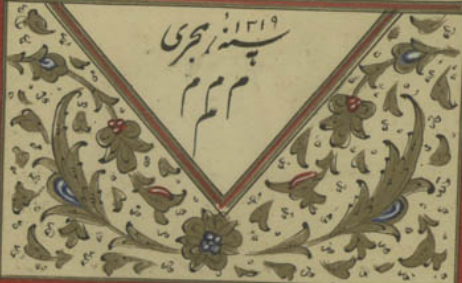 سنہ ۱۳۱۹ ہجری
م م م
م